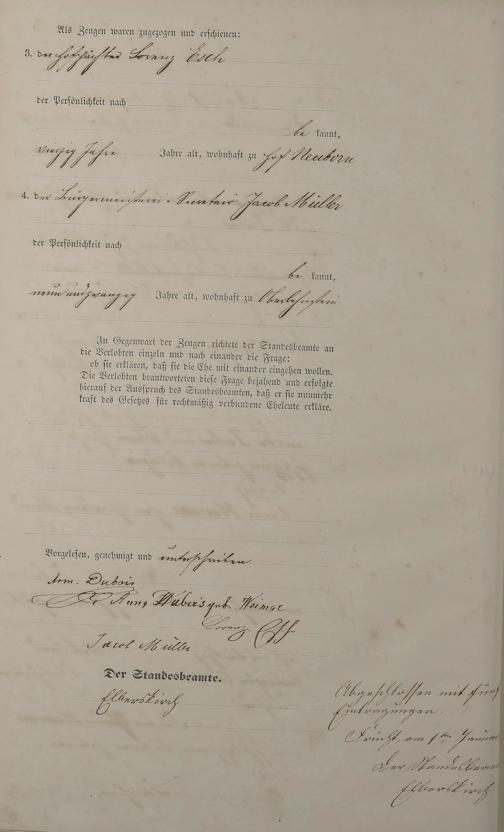 Als Zeugen waren zugezogen und erschienen:
3. der Hofpächter Lorenz Esch
der Persönlichkeit nach
be kannt,
vierzig Jahre Jahre alt, wohnhaft zu Hof Neuborn
4. der Bürgermeisterei-Secretair Jacob Müller
der Persönlichkeit nach
be kannt,
neunundzwanzig Jahre alt, wohnhaft zu Oberlahnstein
In Gegenwart der Zeugen richtete der Standesbeamte an
die Verlobten einzeln und nach einander die Frage:
ob sie erklären, daß sie die Ehe mit einander eingehen wollen.
Die Verlobten beantworteten diese Frage bejahend und erfolgte
hierauf der Ausspruch des Standesbeamten, daß er sie nunmehr
kraft des Gesetzes für rechtmäßig verbundene Eheleute erkläre.
Vorgelesen, genehmigt und unterschrieben
Arm. Dubois
Anna Dubois geb. Weimar
Lorenz Esch
Jacob Müller
Der Standesbeamte.
Elberskirch
Abgeschlossen mit fünf
Eintragungen.
Frücht, am 1ten Januar
Der Standesbeam
Elberskirch